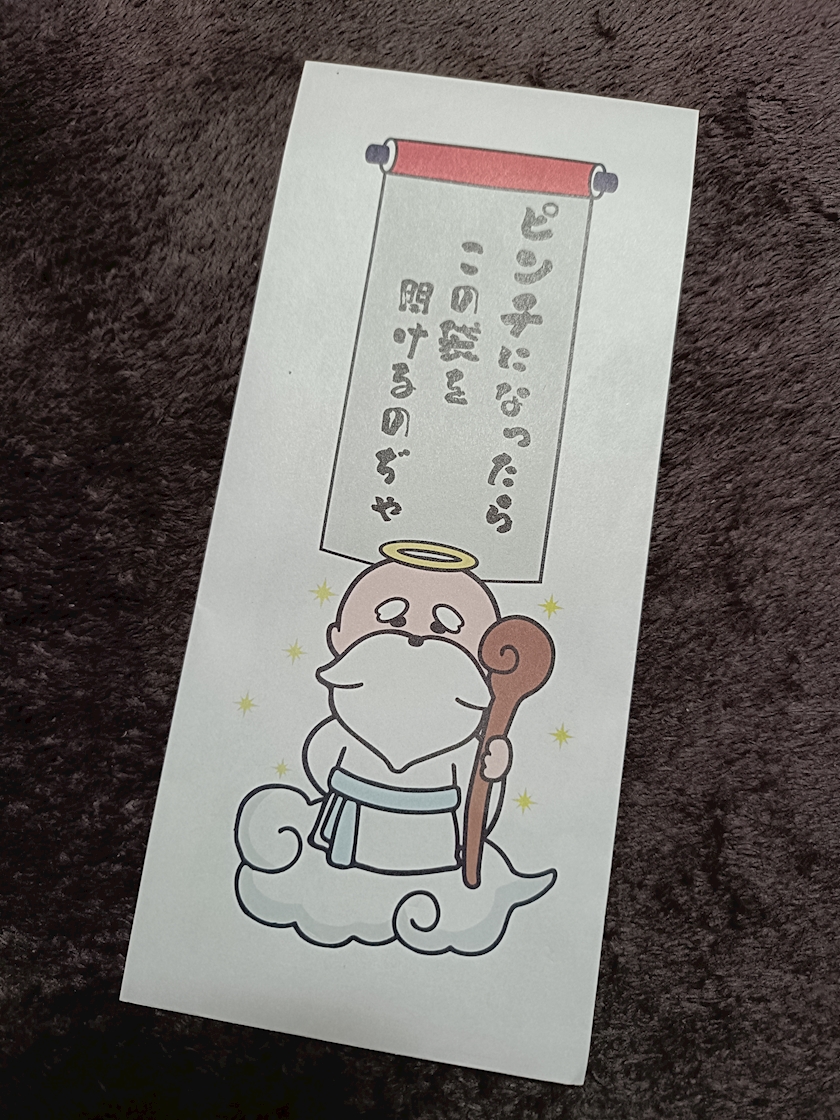 ピンチになったら
この袋を
開けるのぢゃ